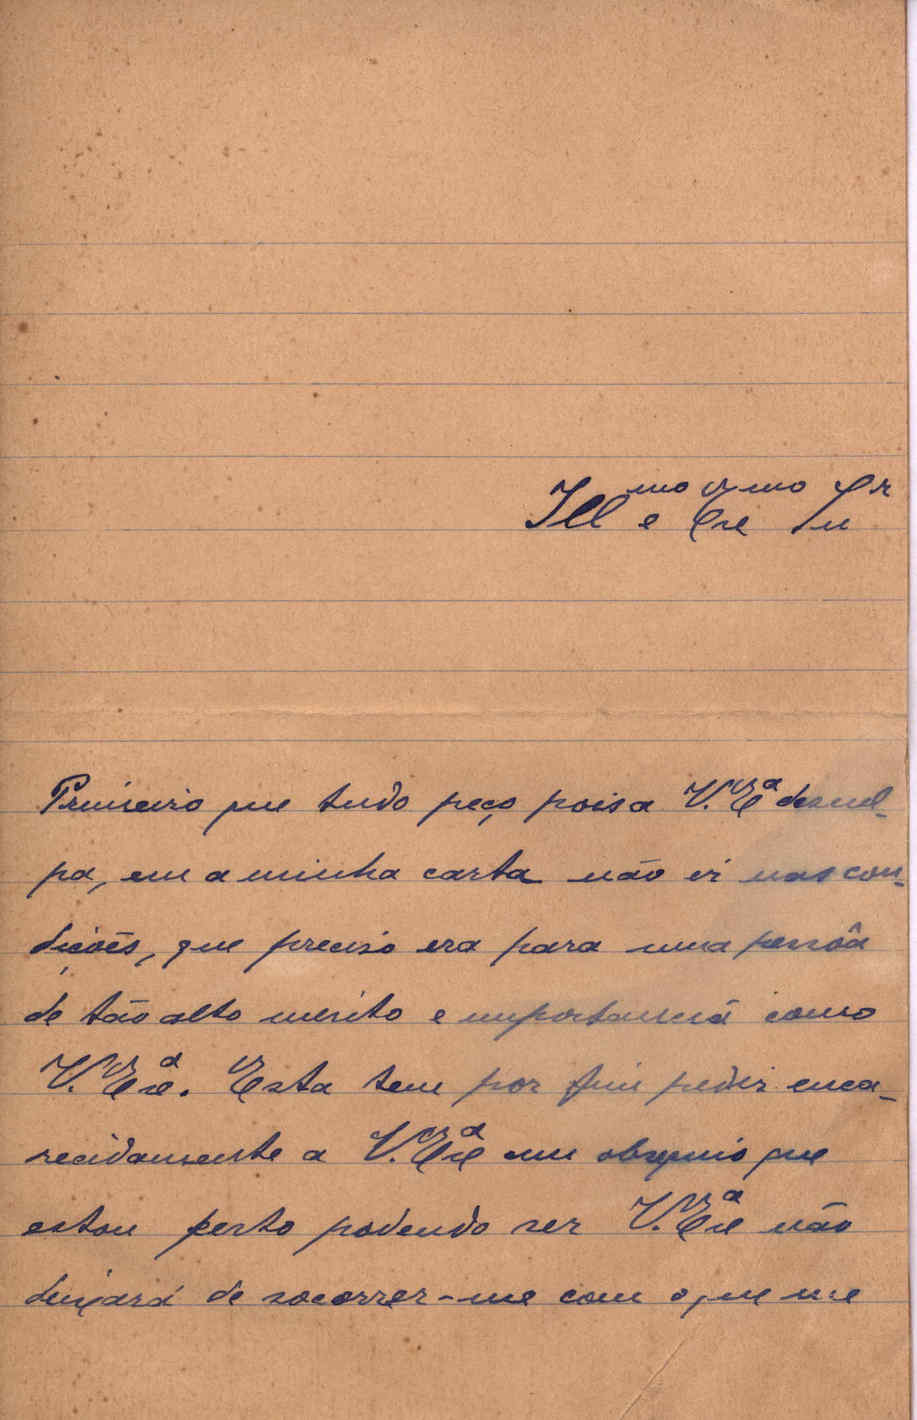 Ill^mo e Ex^mo Sn^r
Primeiro que tudo peço pois a V. Ex^a descul-
pa, em a minha carta não ir nas con-
dições, que preciso era para uma pessôa
de tão alto merito e importancia como
V. Ex^a. Esta tem por fim pedir enca-
recidamente a V. Ex^a um obsequio que
estou perto podendo ser V. Ex^a não
deixará de socorrer-me com o que me